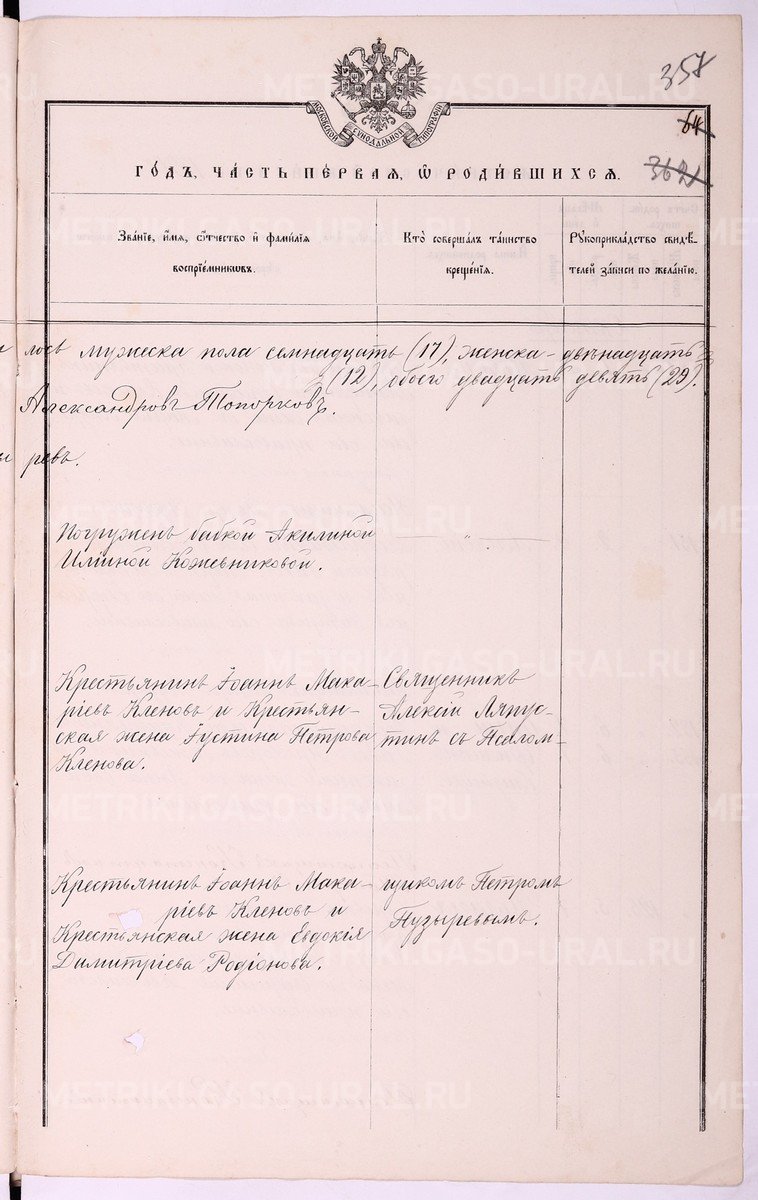 358
МОСКОВСКОЙ СѴНОДАЛЬНОЙ ТИПОГРАФІИ
64
ГО́ДЪ, ЧА́СТЬ ПЕ́РВАЯ, Ѡ҆ РОДИ́ВШИХСѦ.
Зва́нїе, и҆́мѧ, ѻ҆́тчество и҆ фами́лїѧ
воспрїе́мникωвъ.
Кто̀ соверша́лъ та́инство
креще́нїѧ.
Рꙋкоприкла́дство свидѣ́-
телей за́писи по жела́нїю.
лось мужеска пола семнадцать (17), женска - двѣнадцать
(12), обоего двадцать девять (29).
Александровъ Топорковъ.
ревъ.
Погруженъ бабкой Акилиной
Иліиной Кожевниковой.
Крестьянинъ Іоаннъ Мака-
ріевъ Кленовъ и Крестьян-
ская жена Іустина Петрова
Кленова.
Священникъ
Алексій Ляпус-
тинъ съ Псалом-
Крестьянинъ Іоаннъ Мака-
ріевъ Кленовъ и
Крестьянская жена Евдокія
Димитріева Родіонова.
щикомъ Петромъ
Пузыревымъ.
METRIKI.GASO-URAL.RU